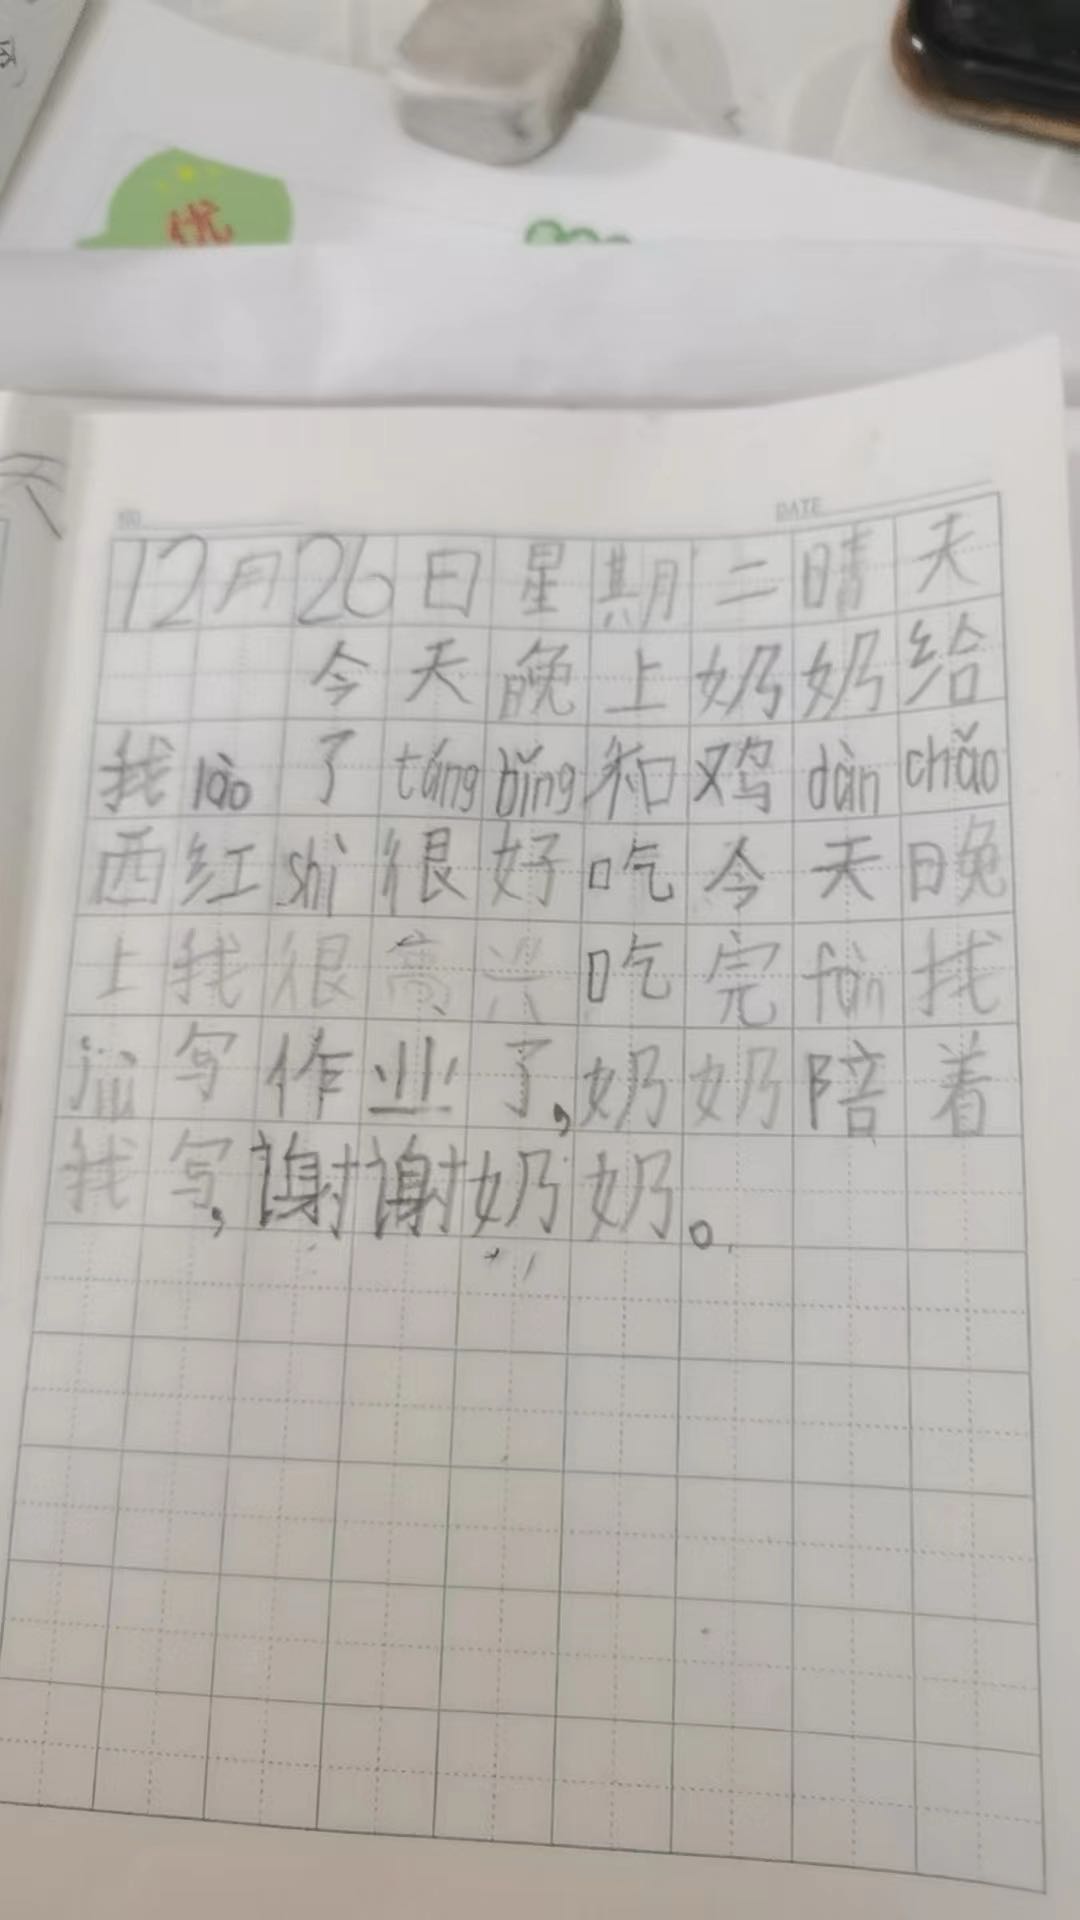 优
天
DATE
12月26日星期二晴天
今天晚上奶奶给
我lào了táng bǐng和鸡dàn chǎo
西红shì很好吃今天晚
上我很高兴吃完fàn我
jiù写作业了,奶奶陪着
我写,谢谢奶奶。